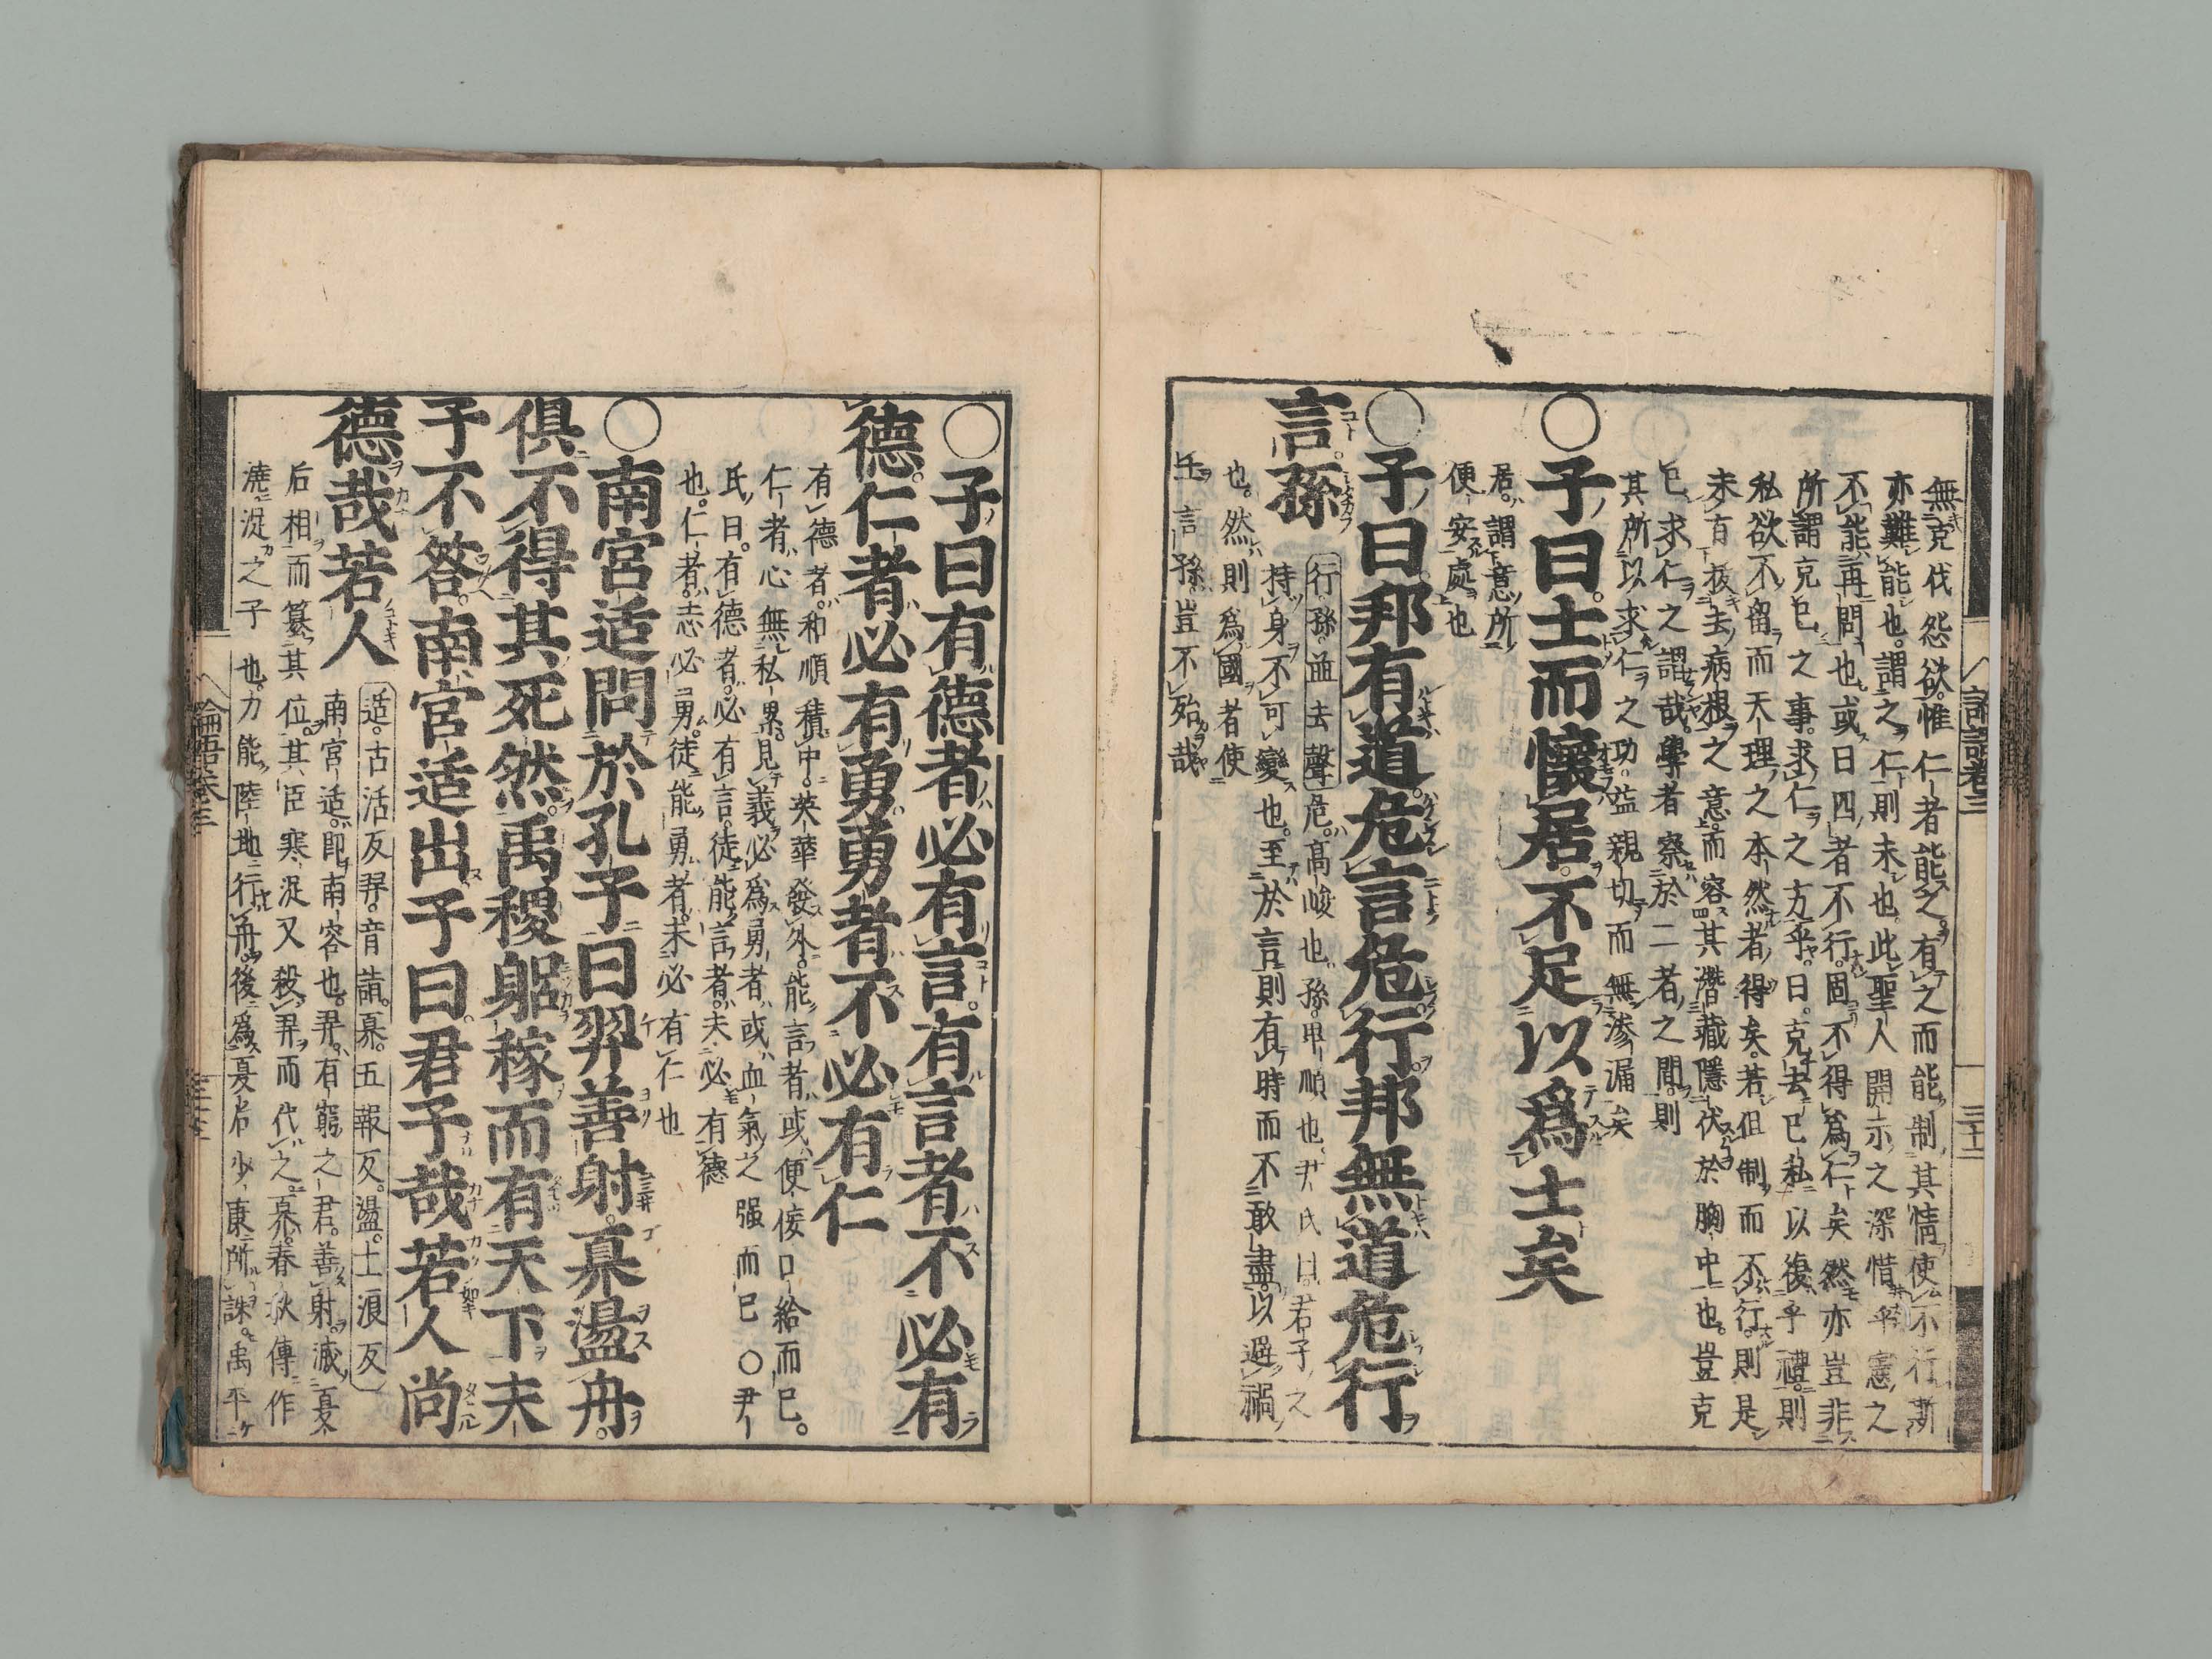 無克伐怨欲惟仁者能之有之而能制其情使不行斯
亦難能也謂之仁則未也此聖人開示之深惜乎憲之
不能再問也或曰四者不行固不得爲仁矣然亦豈非
所謂克己之事求仁之方乎曰克去己私以復乎禮則
私欲不留而天理之本然者得矣若但制而不行則是
未有拔去病根之意而容其潛藏隱伏於胸中也豈克
己求仁之謂哉學者察於二者之間則
其所以求仁之功益親切而無滲漏矣
○子曰士而懷居不足以爲士矣
居謂意所
便安處也
○子曰邦有道危言危行邦無道危行
言孫
行孫並去聲危高峻也孫卑順也尹氏曰君子之
持身不可變也至於言則有時而不敢盡以避禍
也然則爲國者使
士言孫豈不殆哉
論語卷三
○子曰有德者必有言有言者不必有
德仁者必有勇勇者不必有仁
有德者和順積中英華發外能言者或便佞口給而已
仁者心無私累見義必爲勇者或血氣之强而已○尹
氏曰有德者必有言徒能言者未必有德
也仁者志必勇徒能勇者未必有仁也
○南宮适問於孔子曰羿善射奡盪舟
俱不得其死然禹稷躬稼而有天下夫
子不答南宮适出子曰君子哉若人尚
德哉若人
适古活反羿音詣奡五報反盪土浪反
南宮适即南容也羿有窮之君善射滅夏
后相而簒其位其臣寒浞又殺羿而代之奡春秋傳作
澆浞之子也力能陸地行舟後爲夏后少康所誅禹平
論語卷三